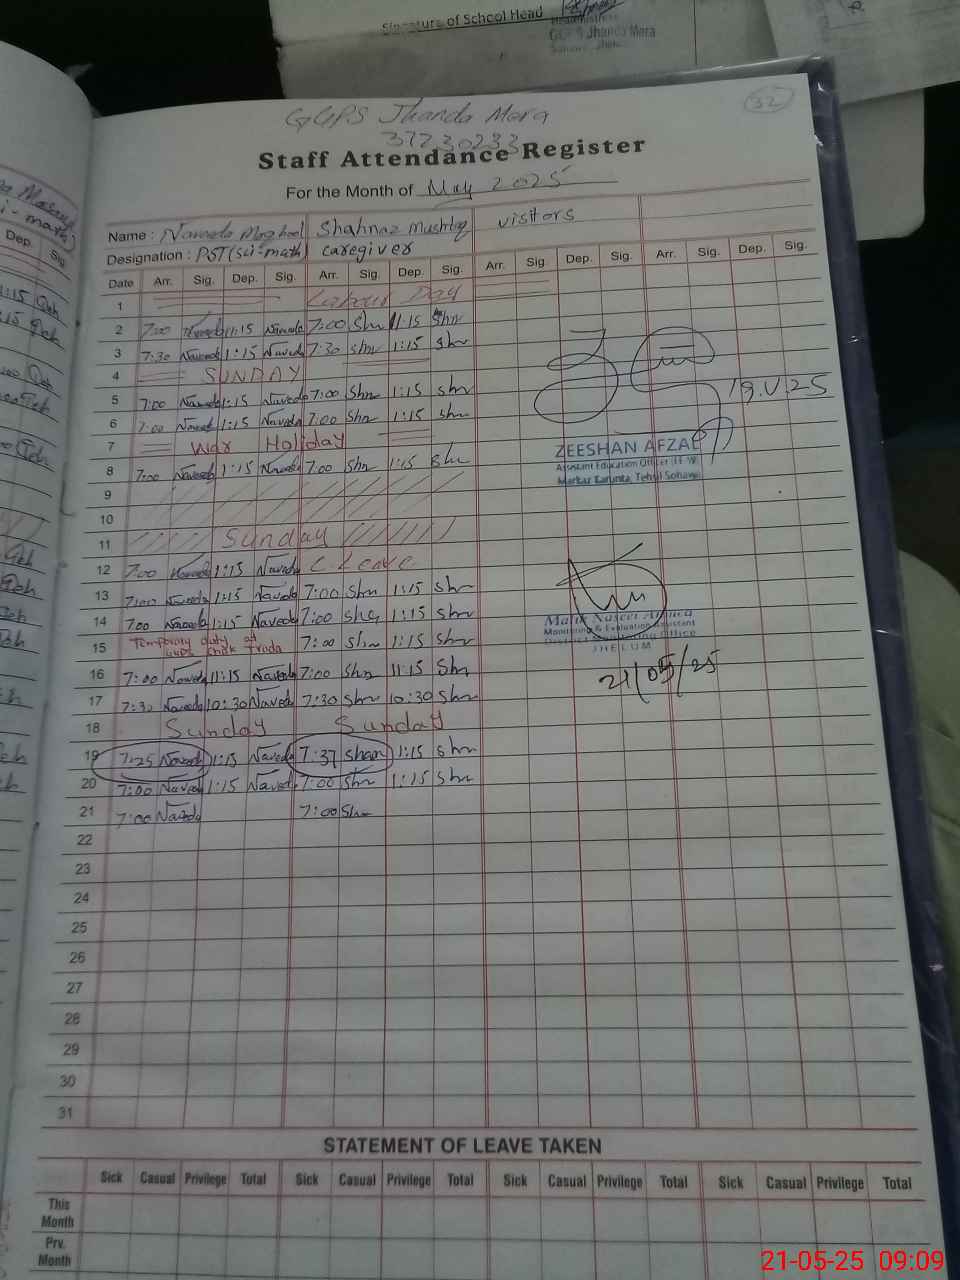 Signature of School Head
GGPS Jhanda Mera
32
GGPS Jhanda Mera
37230233
Staff Attendance Register
For the Month of May 2025
Name : Naveeda Maqbool Shahnaz Mushtaq visitors
Designation : PST(sci-math) caregiver
Date Arr. Sig. Dep. Sig. Arr. Sig. Dep. Sig. Arr. Sig. Dep. Sig. Arr. Sig. Dep. Sig.
1 Labour Day
2 7:00 Naveeda 11:15 Naveeda 7:00 Shn 11:15 Shn
3 7:30 Naveeda 1:15 Naveeda 7:30 Shn 1:15 Shn
4 SUNDAY
5 7:00 Naveeda 1:15 Naveeda 7:00 Shn 1:15 Shn
19.V.25
6 7:00 Naveeda 1:15 Naveeda 7:00 Shn 1:15 Shn
7 War Holiday
ZEESHAN AFZAL
Assistant Education Officer (F-W)
Markaz Karunta, Tehsil Sohawa
8 7:00 Naveeda 1:15 Naveeda 7:00 Shn 1:15 Shn
9
10
11 Sunday
12 7:00 Naveeda 1:15 Naveeda C. Leave
13 7:00 Naveeda 1:15 Naveeda 7:00 Shn 1:15 Shn
14 7:00 Naveeda 1:15 Naveeda 7:00 Shn 1:15 Shn
Monitoring & Evaluation Assistant
District Monitoring Office
JHELUM
15 Temporary duty at GGPS Chak 7:00 Shn 1:15 Shn
21/05/25
16 7:00 Naveeda 11:15 Naveeda 7:00 Shn 11:15 Shn
17 7:30 Naveeda 10:30 Naveeda 7:30 Shn 10:30 Shn
18 Sunday Sunday
19 7:25 Naveeda 1:15 Naveeda 7:37 Shan 1:15 Shn
20 7:00 Naveeda 1:15 Naveeda 7:00 Shn 1:15 Shn
21 7:00 Naveeda 7:00 Shn
22
23
24
25
26
27
28
29
30
31
STATEMENT OF LEAVE TAKEN
Sick Casual Privilege Total Sick Casual Privilege Total Sick Casual Privilege Total Sick Casual Privilege Total
This Month
Prv. Month
21-05-25 09:09